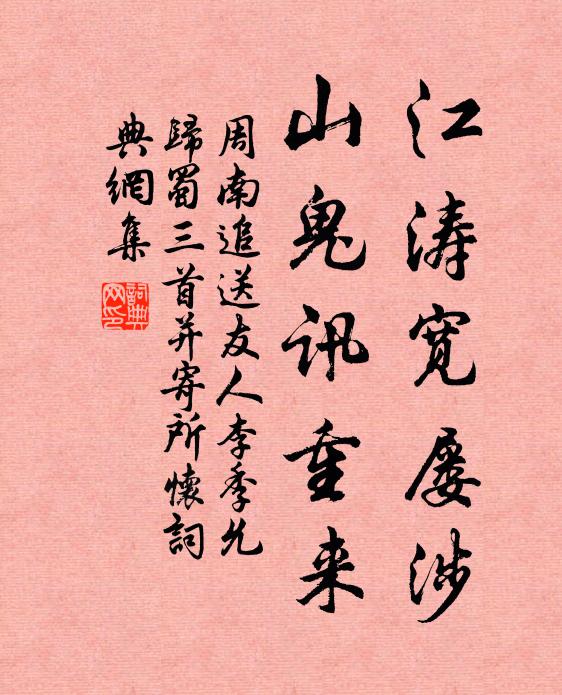 江涛宽屡涉
山鬼讯重来
周南追送友人李季允
歸蜀三首并寄所懷詞
典網集
詞典网印